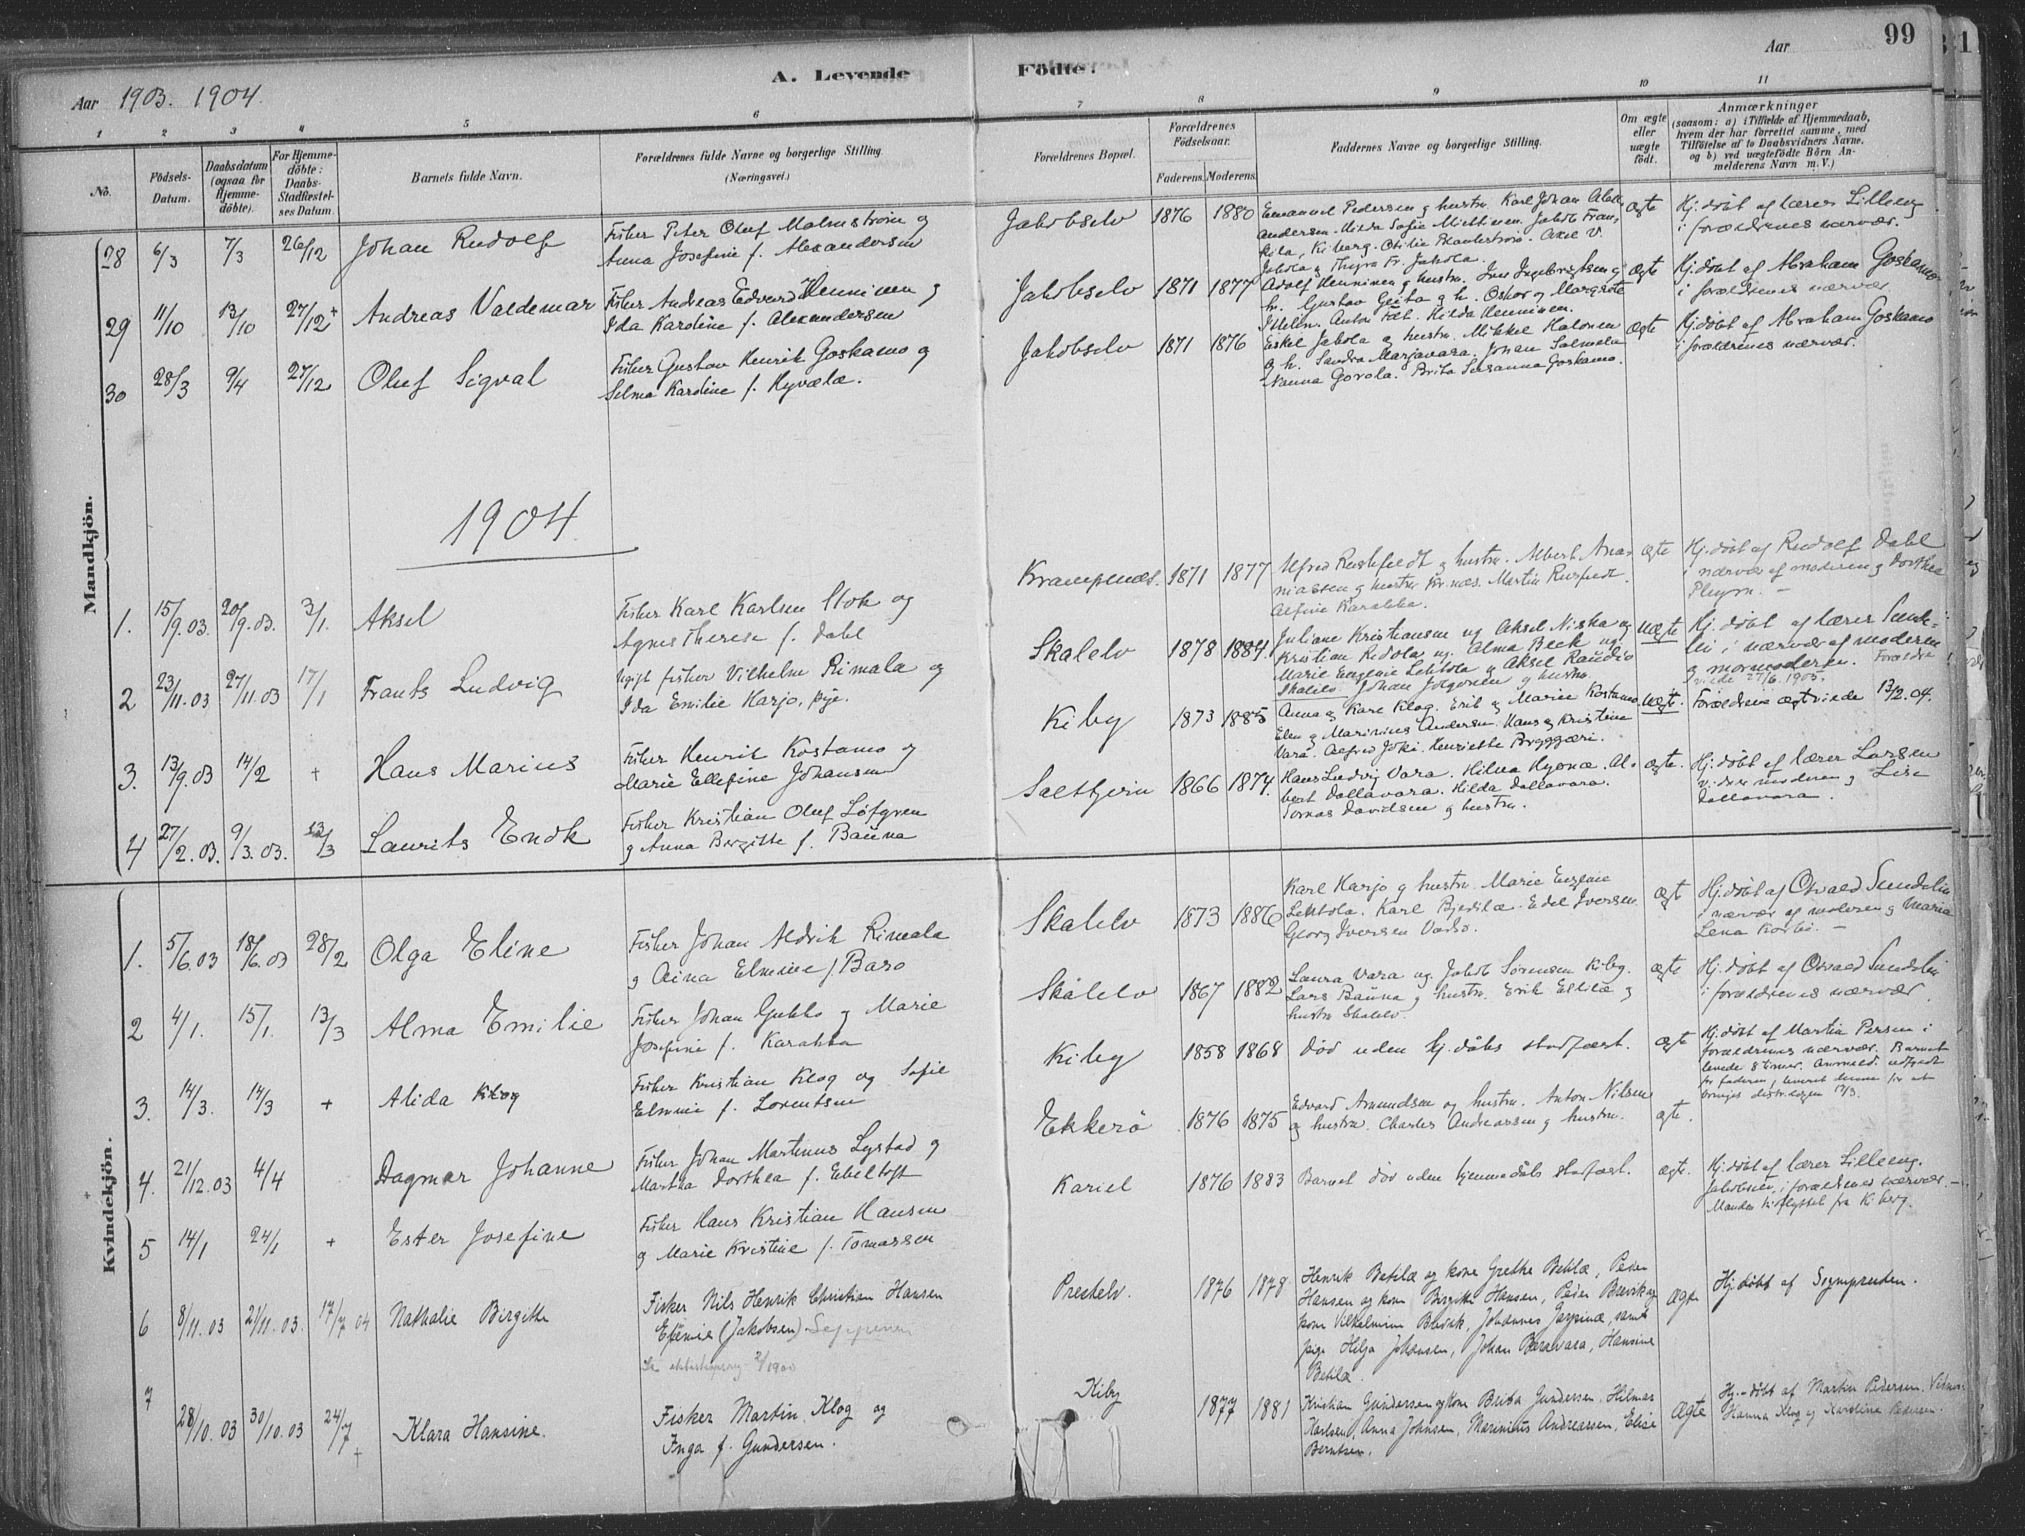 99
Aar 1903. 1904.
A. Levende
Födte.
Aar
1 2 3 4 5 6 7 8 9 10 11
No.
Födsels-
Datum.
Daabsdatum
(ogsaa for
Hjemme-
döbte).
For Hjemme-
döbte:
Daabs-
Stadfæstel-
ses Datum.
Barnets fulde Navn.
Forældrenes fulde Navne og borgerlige Stilling
(Næringsvei.)
Forældrenes Bopæl.
Forældrenes
Födselsaar.
Faderens. Moderens.
Faddernes Navne og borgerlige Stilling.
Om ægte
eller
uægte
födt.
Anmærkninger
(saasom: a) i Tilfælde af Hjemmedaab,
hvem der har forrettet samme, med
Tilföielse af to Daabsvidners Navne,
og b) ved uægtefödte Börn An-
melderens Navn m. V.)
Mandkjön.
28 6/3 7/3 26/12 Johan Rudolf
Fisker Peter Oluf Malmström og
Anna Josefine f. Alexandersen
Jakobselv 1876 1880
Emanuel Pedersen og hustru. Karl Johan
Andersen. Hilda Sofie Miettinen. Jakob
Kiberg. Otilie
Jakola og Thyra Fr. Jakola.
ægte
Hj. døbt af lærer Lilleeng
i forældrenes nærvær.
29 11/10 13/10 27/12 + Andreas Valdemar
Fisker Andreas Edvard Henninen og
Ida Karoline f. Alexandersen
Jakobselv 1871 1877
Adolf Henninen og hustru. Ingebrigtsen og
h. Gustav og h. Oskar og Margrete
Anton Hilda Henninen.
ægte
Hj. døbt af Abraham Goskamo
i forældrenes nærvær
30 28/3 9/4 27/12 Oluf Sigval
Fisker Gustav Henrik Goskamo og
Selma Karoline f. Hyvælæ.
Jakobselv 1871 1876
Eskel Jakola og hustru. Mikkel Halonen
og h. Sandra Marjavara. Johan Salmela
Nanna Gorola. Brita Susanna Goskamo.
ægte
Hj. døbt af Abraham Goskamo
i forældrenes nærvær.
1904.
1. 15/9.03. 20/9.03. 3/1. Aksel
Fisker Karl Karlsen Stok og
Agnes Therese f. Dahl
Krampenæs. 1871 1877
Alfred og hustru. Albert Ana-
niassen og hustru Martin
Alfine Karakka.
ægte
Hj. døbt af Rudolf Dahl
i nærvær af moderen og Dorthea
2 23/11.03 27/11.03 17/1 Frants Ludvig
Ugift fisker Vilhelm Rimala og
Ida Emilie Karjo, pige.
Skalelv 1878 1884
Juliane Kristiansen ug. Aksel Niska og
Kristian ug. Alma Beck ug.
Marie Eugenie Lektola og Aksel Raudio
Skalelv. Johan og hustru.
uægte
Hj. døbt af lærer Sunde-
lin i nærvær af moderen
og mormoderen. Forældre
viede 27/6.1905.
3. 13/9.03 14/2 + Hans Marius
Fisker Henrik Kostamo og
Marie Ellefine Johansen
Kiby 1873 1885
Anna og Karl Klog. Erik og Marien Kostamo
Elen og Marinius Andersen Hans og Kristine
Vara. Alfred Joki. Henriette
uægte.
Forældrene ægteviede 13/2.04.
4 27/2.03. 9/3.03. 13/3 Laurits Endk
Fisker Kristian Oluf Löfgren
og Anna Bergitte f. Bauna
Saltjern 1866 1874.
Hans Ludvig Vara. Hilma Al-
bert Dallavara. Hilda Dallavara.
Tomas Davidsen og hustru.
ægte.
Hj. døbt af lærer Larsen
vidner moderen og Lise
Dallavara.
Kvindekjön.
1. 5/6.03 18/6.03 28/2 Olga Eline
Fisker Johan Aldrik Rimala
og Aina Elmine f Baro
Skalelv 1873 1886
Karl Karjo og hustru. Marie Eugenie
Lektola. Karl Edel Iversen
Georg Iversen Vadsø.
ægt
Hj. døbt af Osvald Sundelin
i nærvær af moderen og Maria
Lena
2 4/1. 15/1. 13/3 Alma Emilie
Fisker Johan og Marie
Josefine f. Karakka
Skalelv 1867 1882
Laura Vara ug. Jakob Sørensen Kiby.
Lars Bauna og hustru. Erik og
hustru Skalelv.
ægte
Hj. døbt af Osvald Sundelin
i forældrenes nærvær.
3. 14/3. 14/3 + Alida Klog
Fisker Kristian Klog og Sofie
Elmine f. Lorentsen
Kiby 1858 1868
Død uden hj.dåbs stadfæst.
ægte
Hj. døbt af Martin Persen i
forældrenes nærvær. Barnet
levede 8 timer.
4. 21/12.03 4/4 Dagmar Johanne
Fisker Johan Martinus Lystad og
Martha Dorthea f. Ebeltoft
Ekkerö 1876 1875
Edvard Amundsen og hustru. Anton Nilsen
og hustru. Charles Andreassen og hustru.
ægte.
5 14/1 24/1 + Ester Josefine
Fisker Hans Kristian Hansen
og Marie Kristine f. Tomassen
Kariel 1876 1883
Barnet død uden hjemmedåbs stadfæst.
ægte.
Hj. døbt af lærer Lilleeng.
Jakobselv, i forældrenes nærvær.
Manden fra Kiberg.
6 8/11.03 21/11.03. 17/7 04 Nathalie Birgitte
Fisker Nils Henrik Christian Hansen
Efemie (Jakobsen) Seppenen
Prestelv. 1876 1878
Henrik Betilæ og kone Grethe Betilæ, Peder
Hansen og kone Birgitte Hansen, Peder Bærvik og
kone Vilhelmine Bærvik, Johannes samt
pige Helja Johansen, Johan Baravara, Hansine
Betilæ.
Ægte
Hj. døbt af
7 28/10.03 30/10.03 24/7 + Klara Hansine.
Fisker Martin Klog og
Inga f. Gundersen.
Kiby 1877 1881
Kristian Gundersen og kone Berta Gundersen. Hilmar
Karlsen, Anna Johnsen, Marinius Andreassen, Elise
Berntsen.
Ægte
Hj.-døbt af Martin Pedersen.
Hanna Klog og Karoline Pedersen.